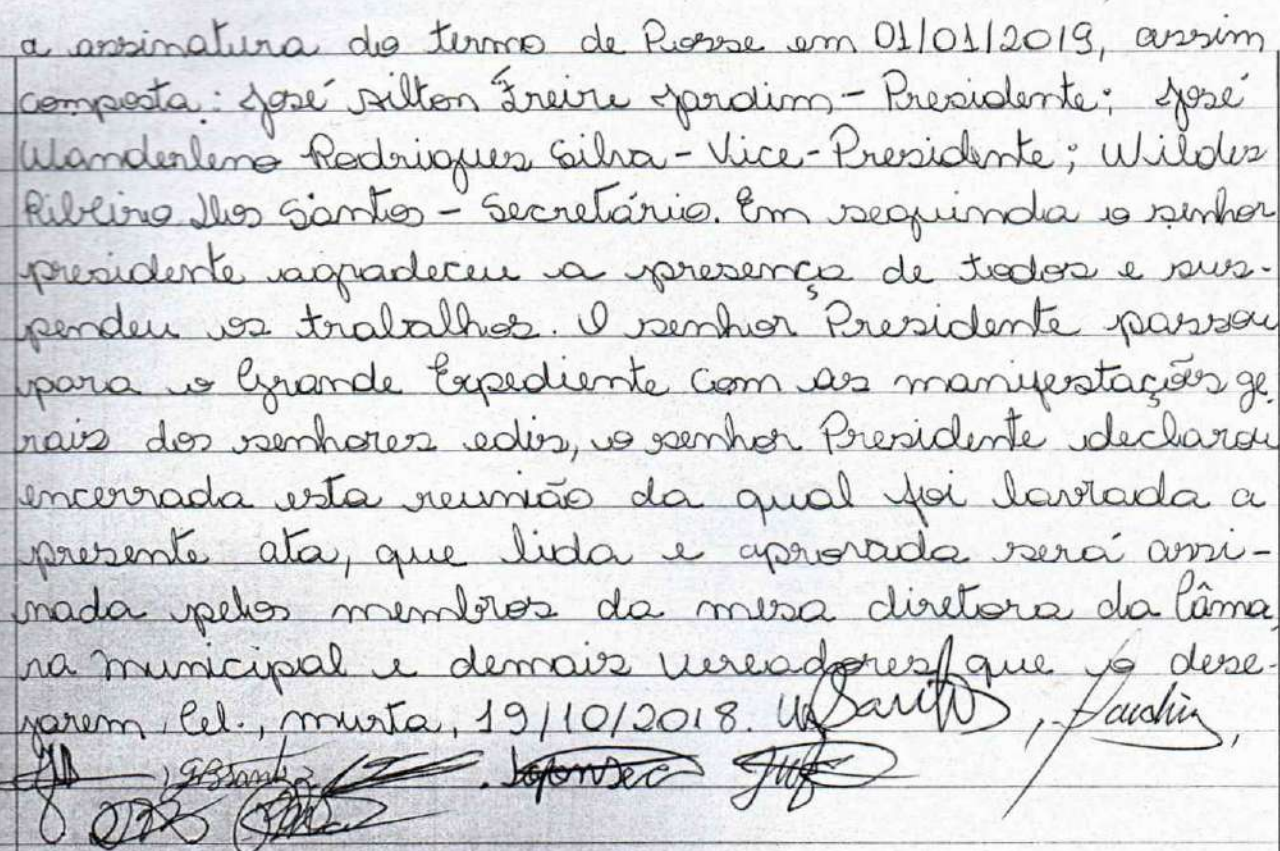 a assinatura do termo de Posse em 01/01/2019, assim
composta: José Ailton Freire Jardim - Presidente; José
Wanderleno Rodrigues Silva - Vice-Presidente; Wildes
Ribeiro Dos Santos - Secretário. Em seguinda o senhor
presidente agradeceu a presença de todos e sus-
pendeu os trabalhos. O senhor Presidente passou
para o Grande Expediente com as manifestações ge
rais dos senhores edis, o senhor Presidente declarou
encerrada esta reunião da qual foi lavrada a
presente ata, que lida e aprovada será assi-
nada pelos membros da mesa diretora da Câma
ra municipal e demais vereadores que o dese-
jarem, Cel., murta, 19/10/2018. Santos, Jardim,
GBSantos